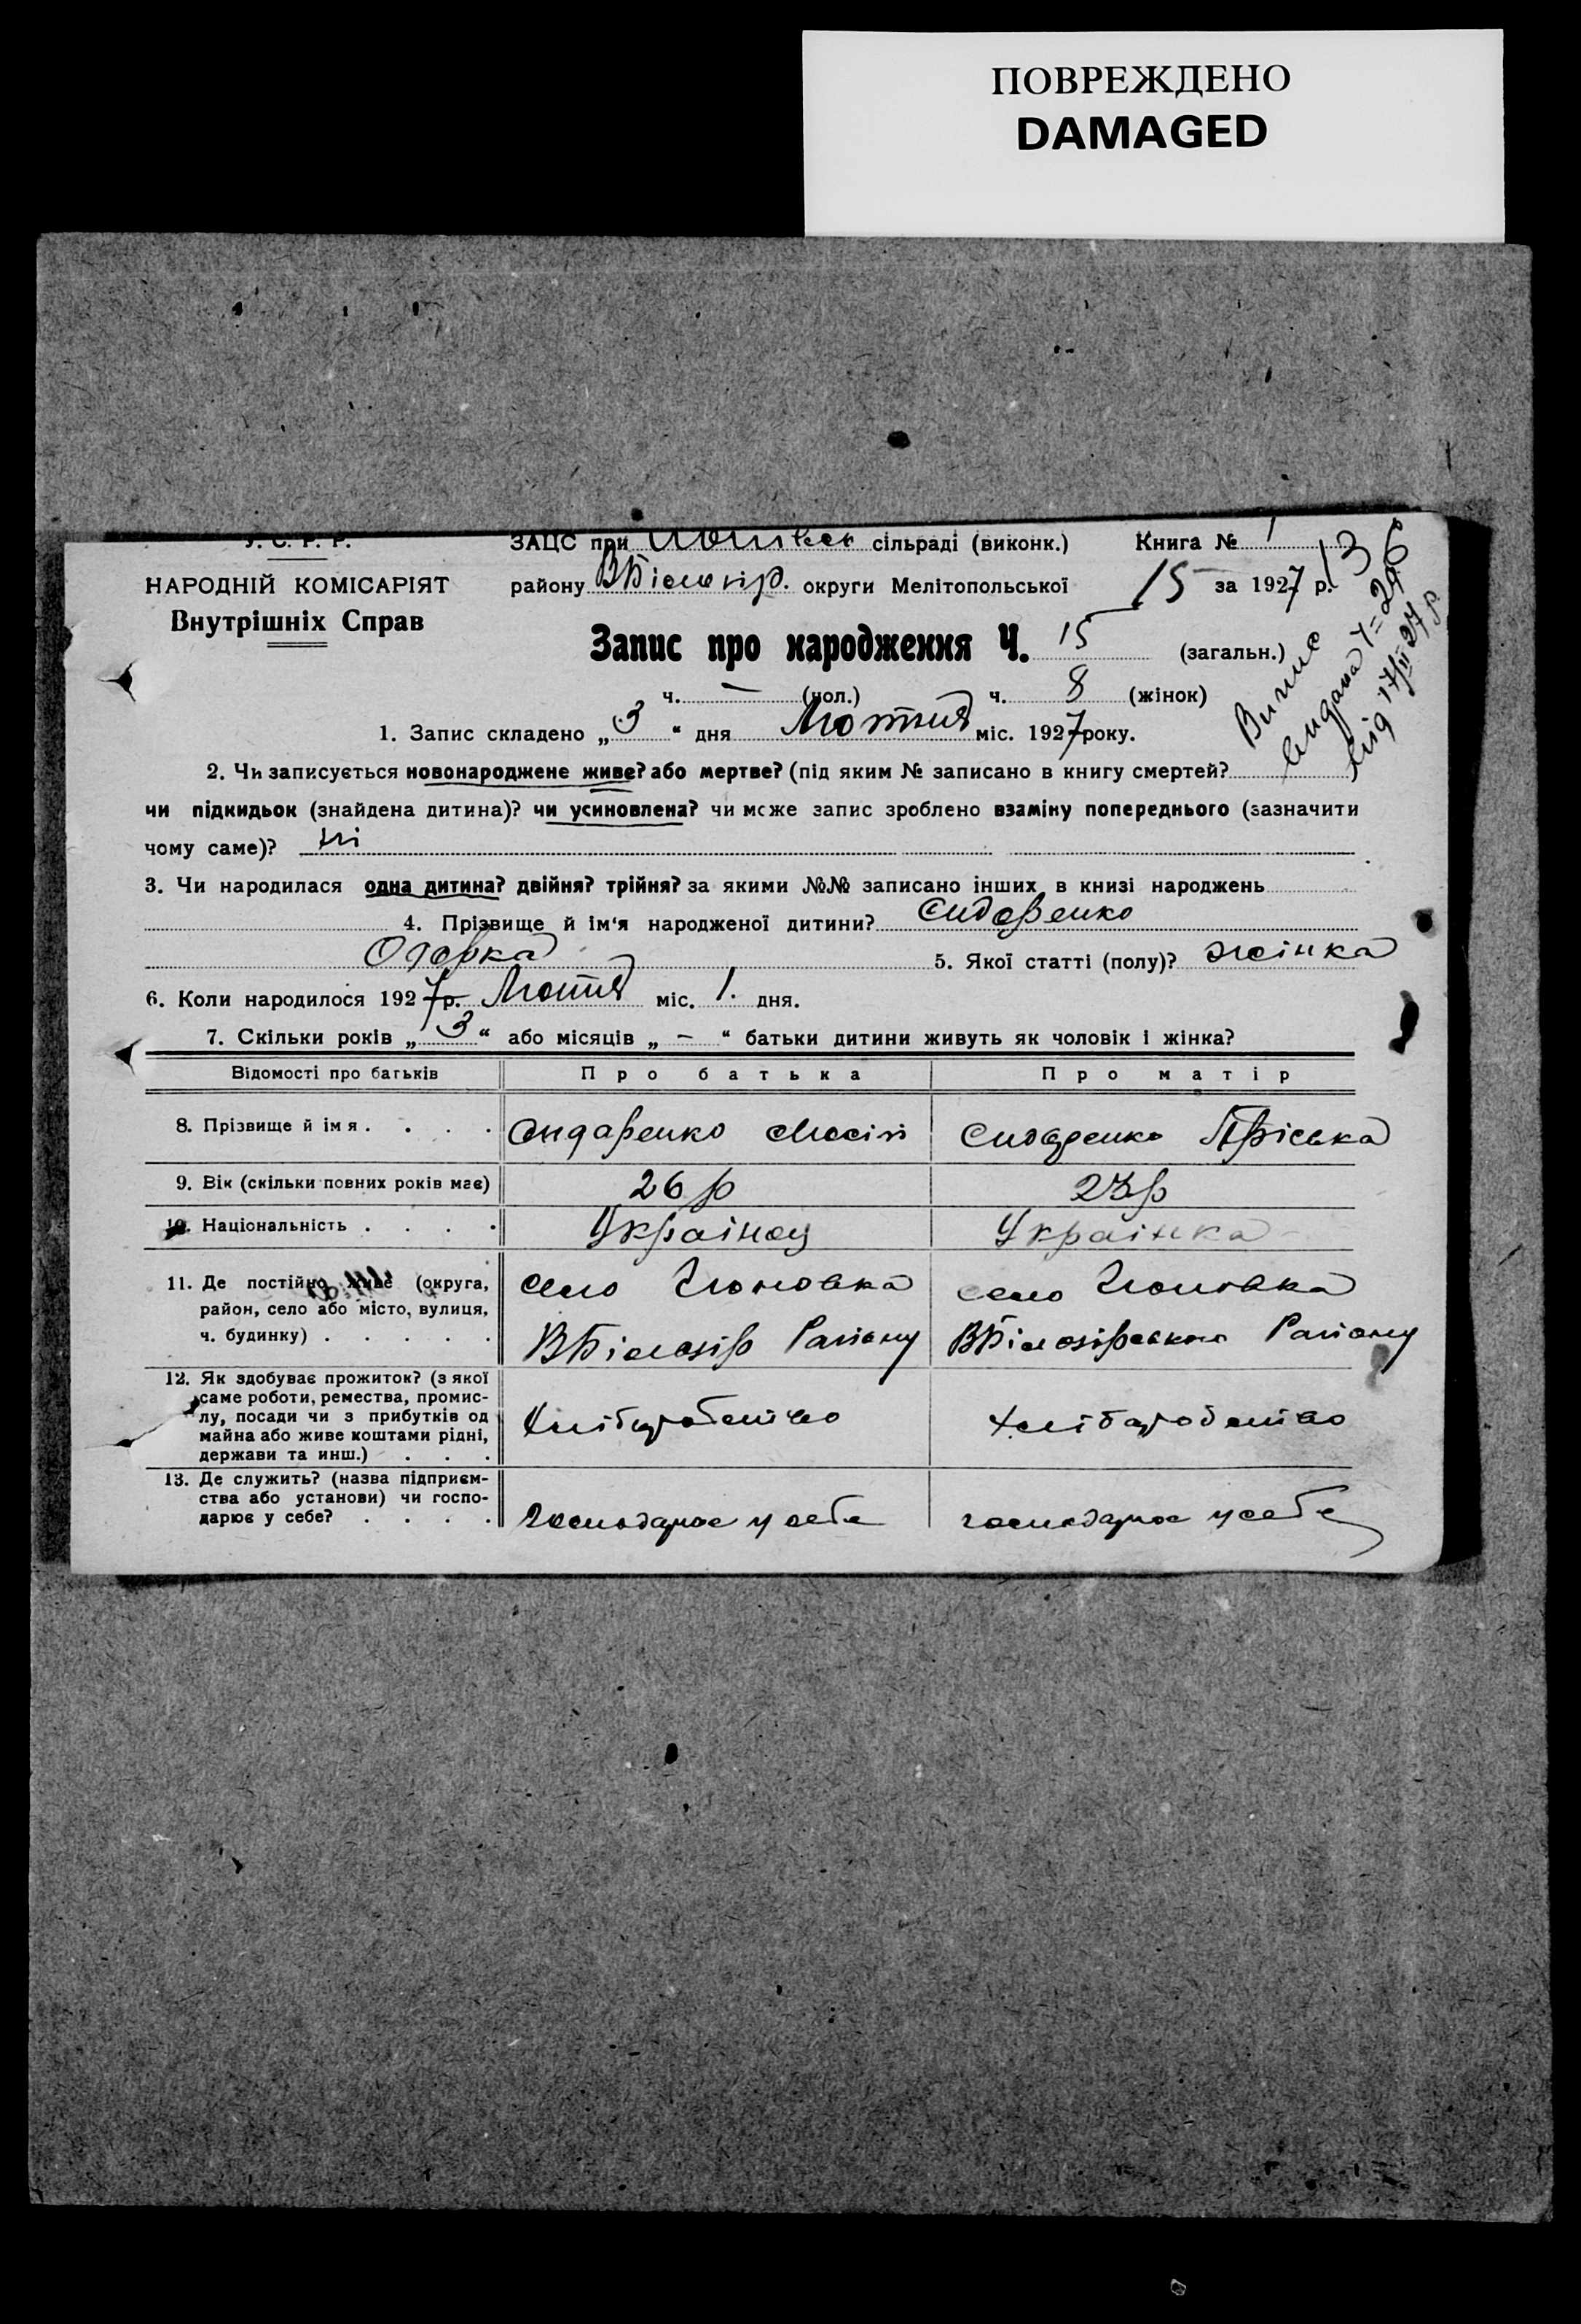 ПОВРЕЖДЕНО
DAMAGED
У. С. Р. Р.
НАРОДНІЙ КОМІСАРІЯТ
Внутрішніх Справ
ЗАЦС при сільраді (виконк.) Книга № 1
району ВБілозір. округи Мелітопольської 15 за 1927 р. 13
Запис про народження Ч. 15 (загальн.)
ч. — (чол.) ч. 8 (жінок)
Випис
від 17/II 27 р
1. Запис складено „3“ дня Лютня міс. 1927 року.
2. Чи записується новонароджене живе? або мертве? (під яким № записано в книгу смертей?
чи підкидьок (знайдена дитина)? чи усиновлена? чи може запис зроблено взаміну попереднього (зазначити
чому саме)? ні
3. Чи народилася одна дитина? двійня? трійня? за якими №№ записано інших в книзі народжень
4. Прізвище й ім‘я народженої дитини? Сидоренко
5. Якої статті (полу)? жінка
6. Коли народилося 1927 р. Лютня міс. 1. дня.
7. Скільки років „3“ або місяців „ – “ батьки дитини живуть як чоловік і жінка?
Відомості про батьків Про батька Про матір
8. Прізвище й імя . . . . Сидаренко Сидоренко Пріська
9. Вік (скільки повних років має) 26 р 23 р
10. Національність . . . . Українец Українка
11. Де постійно живе (округа, село село
район, село або місто, вулиця,
ч. будинку) . . . . . ВБілозір Раиону ВБілозірського Раиону
12. Як здобуває прожиток? (з якої
саме роботи, ремества, промис-
лу, посади чи з прибутків од Хліборобство Хліборобство
майна або живе коштами рідні,
держави та инш.) . . .
13. Де служить? (назва підприєм-
ства або установи) чи госпо-
дарює у себе? . . . . господарює у себе господарює у себе